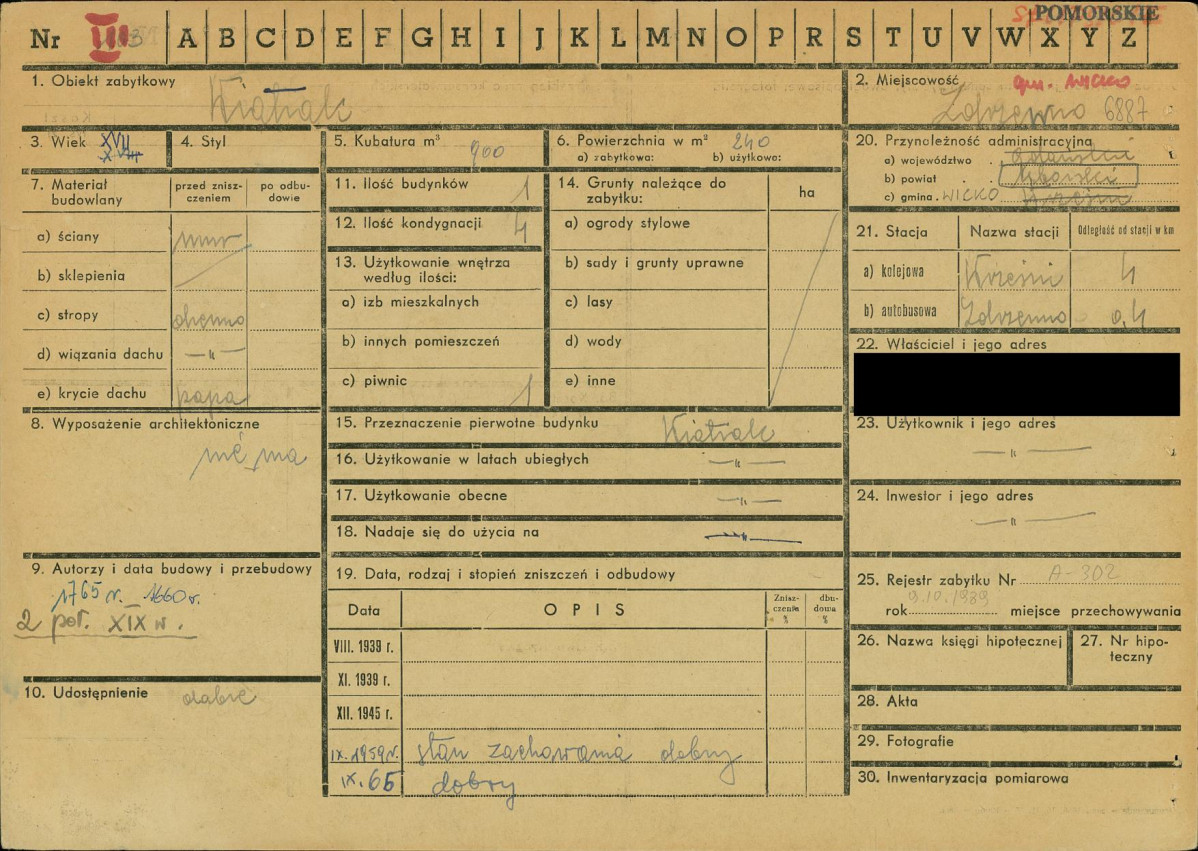 POMORSKIE
Nr III A B C D E F G H I J K L M N O P R S T U V W X Y Z
1. Obiekt zabytkowy
Wiatrak
2. Miejscowość gm. WICKO
Zdrzewno 6887
3. Wiek XVII
XVIII
4. Styl
5. Kubatura m³ 900
6. Powierzchnia w m² 240
a) zabytkowa: b) użytkowo:
20. Przynależność administracyjna
a) województwo gdański
b) powiat lęborski
c) gmina WICKO
7. Materiał budowlany
przed zniszczeniem
po odbudowie
a) ściany mur
b) sklepienia
c) stropy drewno
d) wiązania dachu —"—
e) krycie dachu papa
8. Wyposażenie architektoniczne
nie ma
9. Autorzy i data budowy i przebudowy
1765 r. 1660 r.
2 poł. XIX w.
10. Udostępnienie dobre
11. Ilość budynków 1
12. Ilość kondygnacji 4
13. Użytkowanie wnętrza
według ilości:
a) izb mieszkalnych
b) innych pomieszczeń
c) piwnic 1
14. Grunty należące do
zabytku:
ha
a) ogrody stylowe
b) sady i grunty uprawne
c) lasy
d) wody
e) inne
15. Przeznaczenie pierwotne budynku Wiatrak
16. Użytkowanie w latach ubiegłych —"—
17. Użytkowanie obecne —"—
18. Nadaje się do użycia na —"—
19. Data, rodzaj i stopień zniszczeń i odbudowy
Data OPIS Zniszczenia % dbudowa %
VIII. 1939 r.
XI. 1939 r.
XII. 1945 r.
IX. 1959 r. stan zachowania dobry
IX. 65 dobry
21. Stacja Nazwa stacji Odległość od stacji w km
a) kolejowa 4
b) autobusowa Zdrzewno 0,4
22. Właściciel i jego adres
23. Użytkownik i jego adres
—"—
24. Inwestor i jego adres
—"—
25. Rejestr zabytku Nr A-302
rok 9.10.1989 miejsce przechowywania
26. Nazwa księgi hipotecznej
27. Nr hipoteczny
28. Akta
29. Fotografie
30. Inwentaryzacja pomiarowa